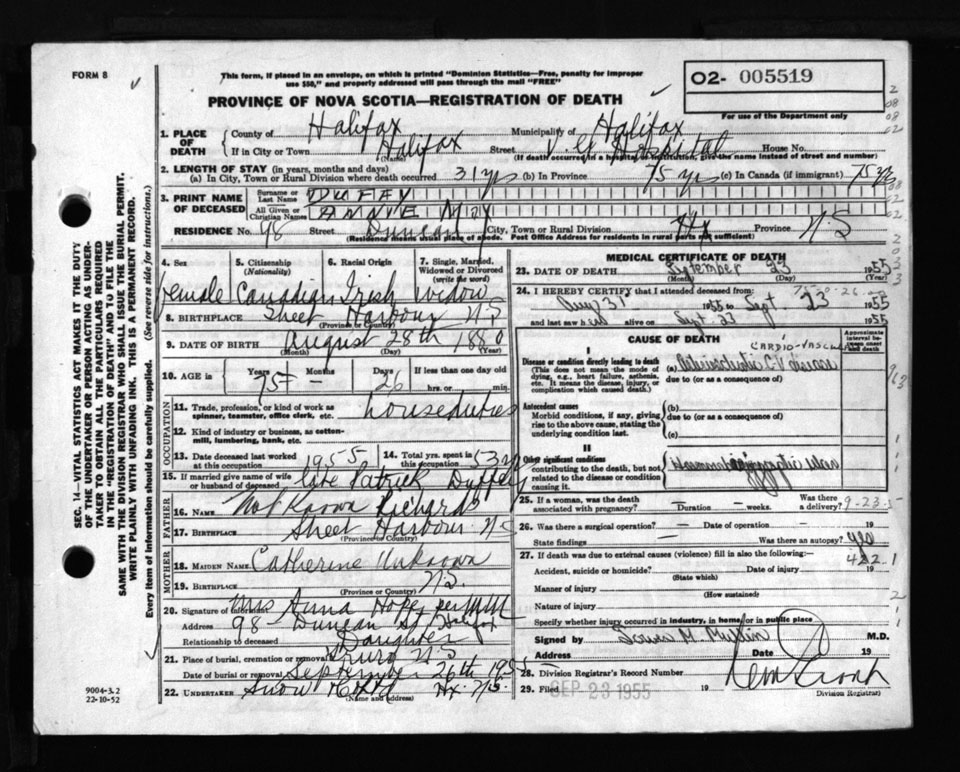 FORM 8
This form, if placed in an envelope, on which is printed "Dominion Statistics—Free, penalty for improper
use $50," and properly addressed will pass through the mail "FREE"
O2- 005519
PROVINCE OF NOVA SCOTIA—REGISTRATION OF DEATH
For use of the Department only
1. PLACE OF DEATH
County of Halifax Municipality of Halifax
If in City or Town Halifax Street V. G. Hospital House No.
(Name) (If death occurred in a hospital or institution, give the name instead of street and number)
2. LENGTH OF STAY (in years, months and days)
(a) In City, Town or Rural Division where death occurred 31 yrs (b) In Province 75 yrs (c) In Canada (if immigrant) 75 yrs
3. PRINT NAME OF DECEASED
Surname or Last Name DUFFAY
All Given or Christian Names ANNIE MAY
RESIDENCE No. 98 Street Duncan City, Town or Rural Division Hx Province N S
(Residence means usual place of abode. Post Office Address for residents in rural parts not sufficient)
4. Sex 5. Citizenship (Nationality) 6. Racial Origin 7. Single, Married, Widowed or Divorced (write the word)
female Canadian Irish Widow
8. BIRTHPLACE Sheet Harbour N S
(Province or Country)
9. DATE OF BIRTH August 28th 1880
(Month) (Day) (Year)
10. AGE in Years Months Days If less than one day old
75 – 26 hrs. or min.
OCCUPATION
11. Trade, profession, or kind of work as spinner, teamster, office clerk, etc. houseduties
12. Kind of industry or business, as cotton-mill, lumbering, bank, etc.
13. Date deceased last worked at this occupation 1955 14. Total yrs. spent in this occupation 53 yrs
15. If married give name of wife or husband of deceased late Patrick Duffey
FATHER
16. NAME Not Known Richards
17. BIRTHPLACE Sheet Harbour N S
(Province or Country)
MOTHER
18. MAIDEN NAME Catherine Unknown
19. BIRTHPLACE N S.
(Province or Country)
20. Signature of informant Mrs Anna Hope per
Address 98 Duncan St, Halifax
Relationship to deceased Daughter
21. Place of burial, cremation or removal Truro N S
Date of burial or removal September 26th 1955
22. UNDERTAKER Snow & Co Ltd Hx. N.S.
(Name and address)
9004-3.2
22-10-52
MEDICAL CERTIFICATE OF DEATH
23. DATE OF DEATH September 23 1955
(Month) (Day) (Year)
24. I HEREBY CERTIFY that I attended deceased from:
Aug 31 1955 to Sept 23 1955
and last saw her alive on Sept 23 1955
CAUSE OF DEATH
Approximate interval between onset and death
CARDIO-VASCULAR
I
Disease or condition directly leading to death
(This does not mean the mode of dying, e.g., heart failure, asthenia, etc. It means the disease, injury, or complication which caused death.)
(a) Arteriosclerotic C-V disease
due to (or as a consequence of)
Antecedent causes
Morbid conditions, if any, giving rise to the above cause, stating the underlying condition last.
(b)
due to (or as a consequence of)
(c)
II
Other significant conditions contributing to the death, but not related to the disease or condition causing it.
25. If a woman, was the death associated with pregnancy? Duration – weeks. Was there a delivery?
9-23-5
26. Was there a surgical operation? – Date of operation – 19
State findings — Was there an autopsy? no
27. If death was due to external causes (violence) fill in also the following:—
422.1
Accident, suicide or homicide? Date of injury 19
(State which)
Manner of injury
(How sustained)
Nature of injury
Specify whether injury occurred in industry, in home, or in public place
Signed by M.D.
Address Date 19
28. Division Registrar's Record Number
29. Filed SEP 23 1955 19
Division Registrar)
SEC. 14—VITAL STATISTICS ACT MAKES IT THE DUTY
OF THE UNDERTAKER OR PERSON ACTING AS UNDER-
TAKER TO OBTAIN ALL THE PARTICULARS REQUIRED
IN THE "REGISTRATION OF DEATH" AND TO FILE THE
SAME WITH THE DIVISION REGISTRAR WHO SHALL ISSUE THE BURIAL PERMIT.
WRITE PLAINLY WITH UNFADING INK. THIS IS A PERMANENT RECORD.
Every item of information should be carefully supplied. (See reverse side for instructions.)